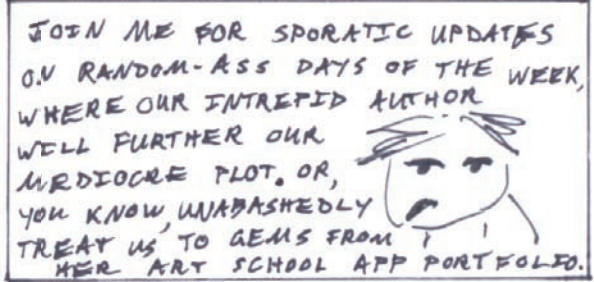 JOIN ME FOR SPORATIC UPDATES
ON RANDOM-ASS DAYS OF THE WEEK,
WHERE OUR INTREPID AUTHOR
WILL FURTHER OUR
MEDIOCRE PLOT. OR,
YOU KNOW, UNABASHEDLY
TREAT US TO GEMS FROM
HER ART SCHOOL APP PORTFOLIO.